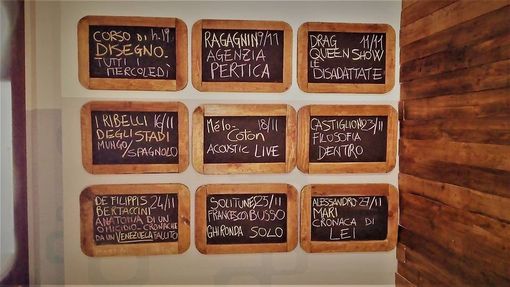 CORSO DI h.19
DISEGNO
TUTTI I
MERCOLEDÌ
RAGAGNIN 9/11
AGENZIA
PERTICA
DRAG 11/11
QUEEN SHOW
LE
DISADATTATE
I RIBELLI 16/11
DEGLI STADI
MUNGO/SPAGNOLO
Mélo- 18/11
Coton
ACOUSTIC LIVE
CASTIGLIONI 23/11
FILOSOFIA
DENTRO
DE FILIPPIS 24/11
BERTACCINI
ANATOMIA DI UN
OMICIDIO-CRONACHE
DA UN VENEZUELA FALLITO
SOLITUNES 25/11
FRANCESCO BUSSO
GHIRONDA SOLO
ALESSANDRO 27/11
MARI
CRONACA DI
LEI